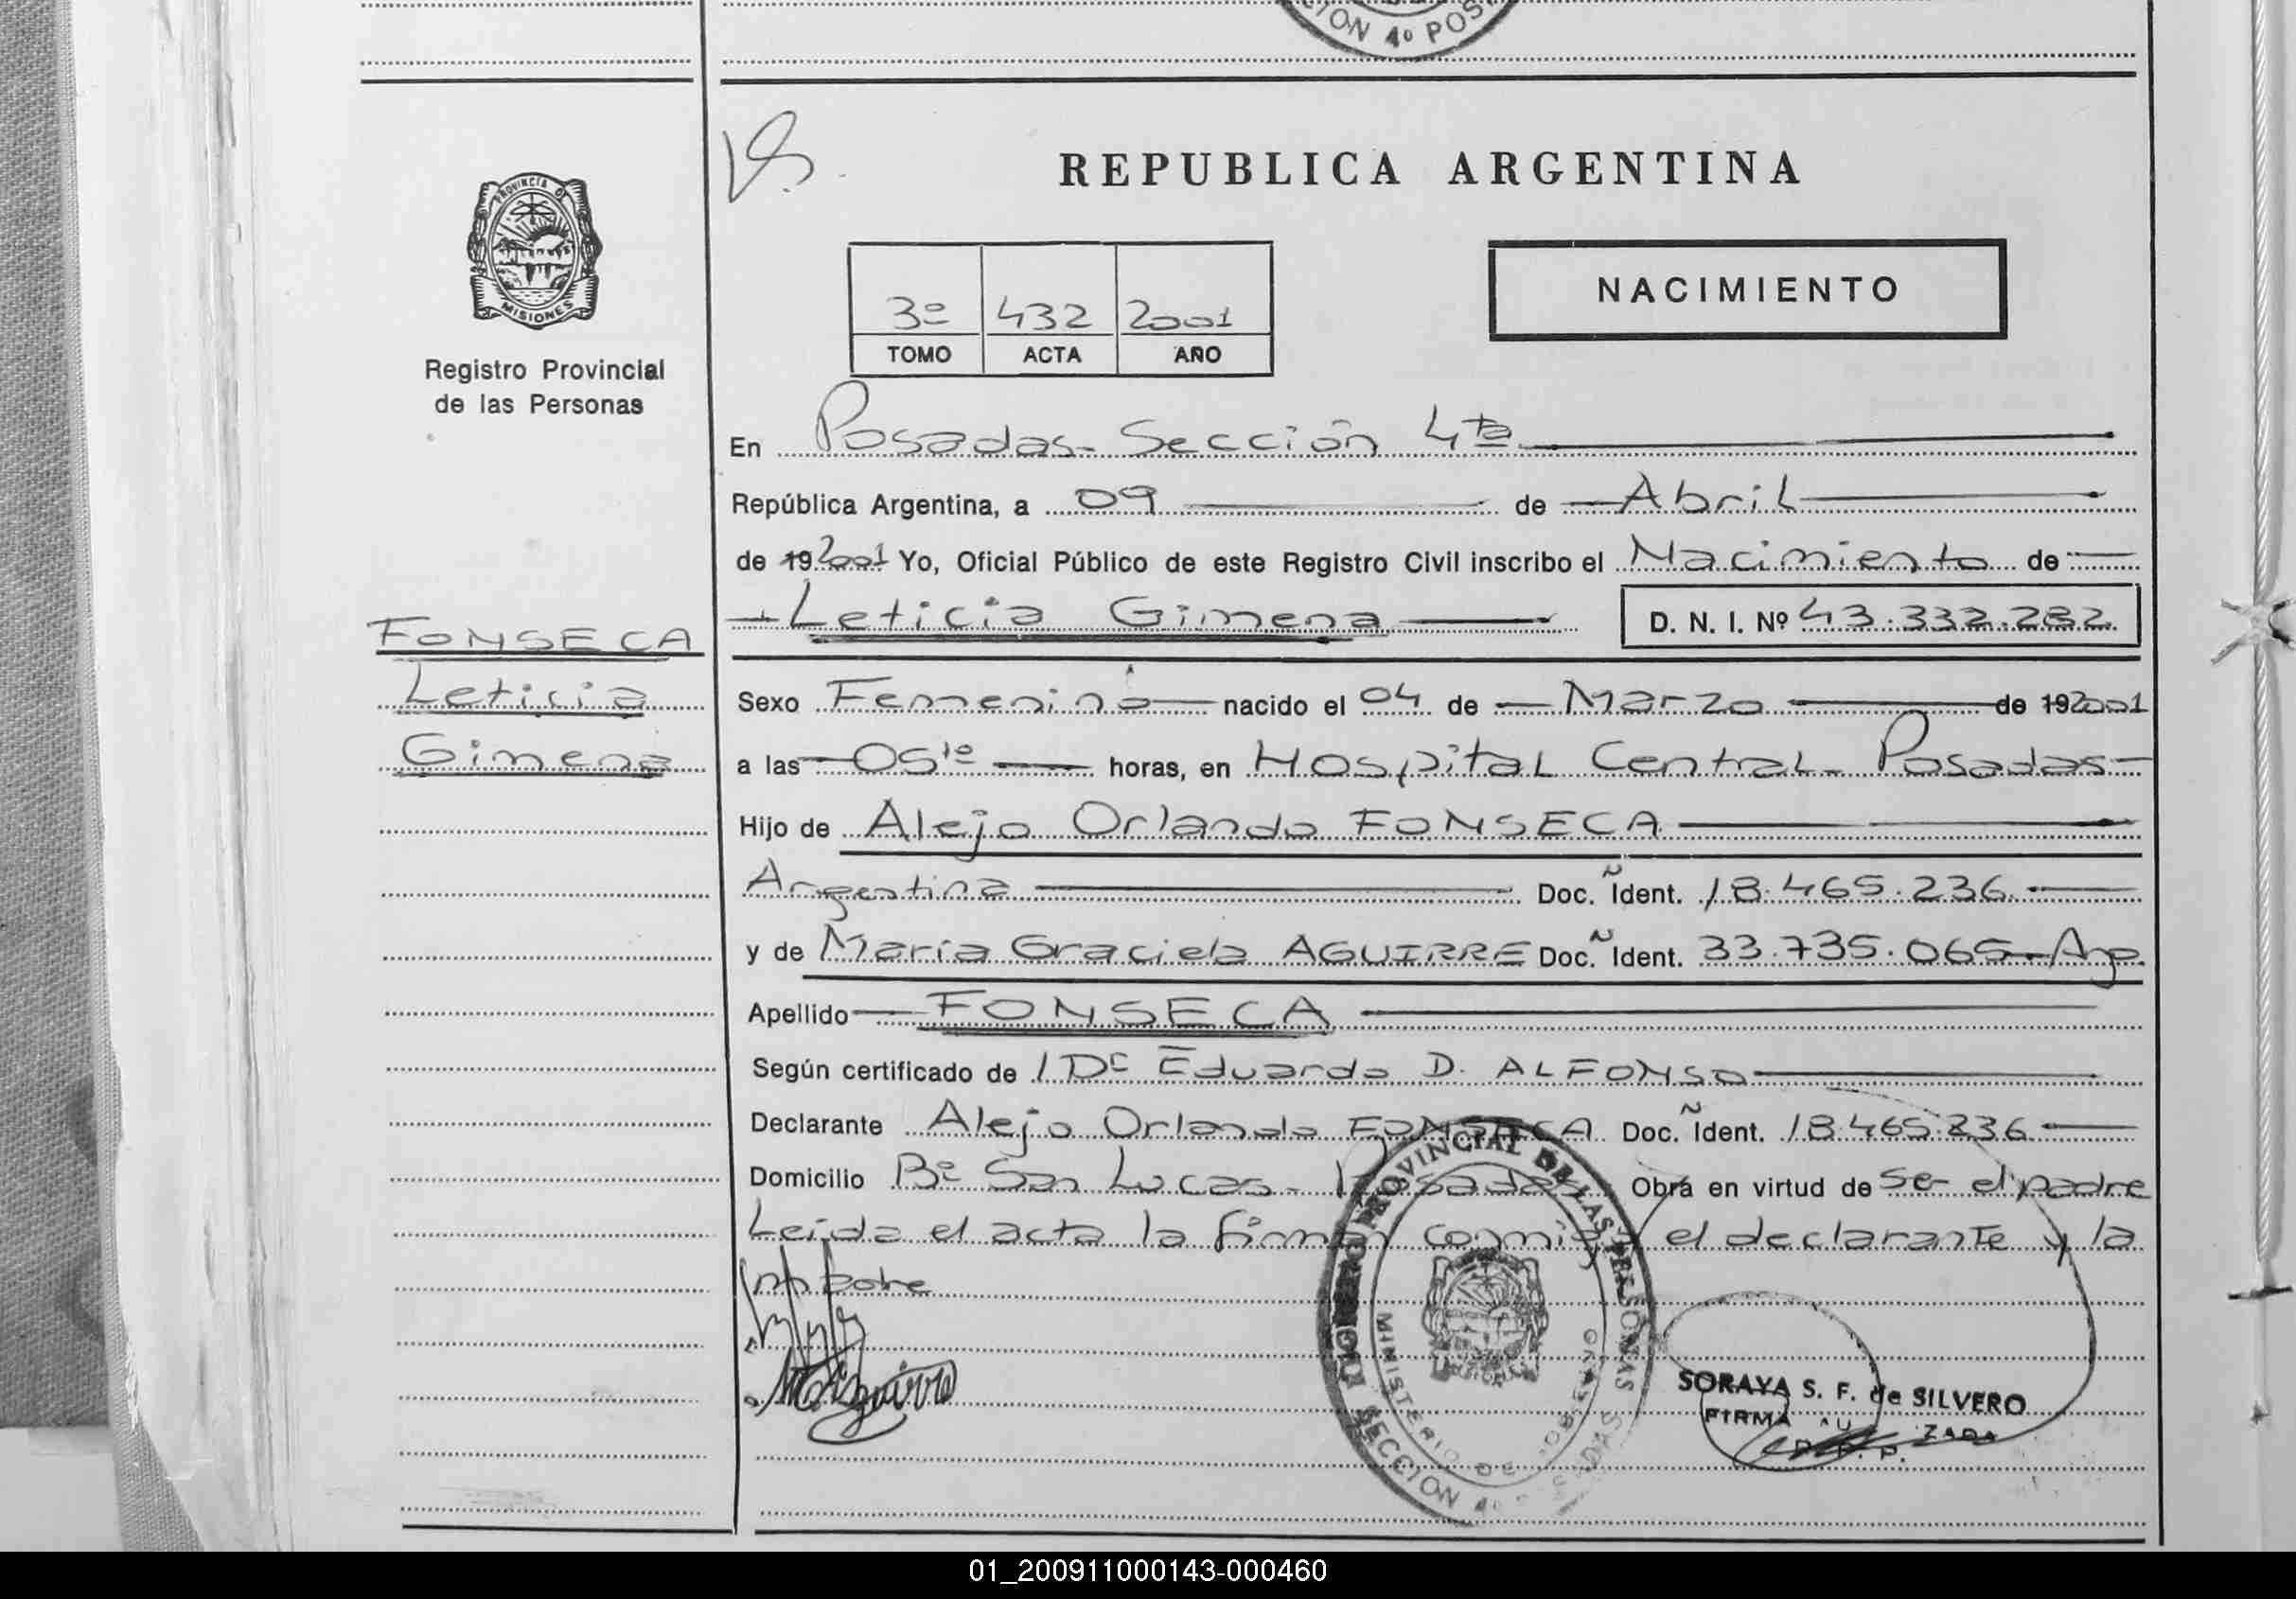 CION 4º POS
PROVINCIA DE
MISIONES
Registro Provincial
de las Personas
REPUBLICA ARGENTINA
NACIMIENTO
3º 432 2001
TOMO ACTA AÑO
En Posadas- Sección 4ta
República Argentina, a 09 de Abril
de 19 2001 Yo, Oficial Público de este Registro Civil inscribo el Nacimiento de
Leticia Gimena D. N. I. Nº 43.332.282
FONSECA
Leticia
Gimena
Sexo Femenino nacido el 04 de Marzo de 192001
a las 05 10 horas, en Hospital Central- Posadas-
Hijo de Alejo Orlando FONSECA
Argentina Doc. Ñ Ident. 18.465.236
y de María Graciela AGUIRRE Doc. Ñ Ident. 33.735.065- Arg.
Apellido FONSECA
Según certificado de Eduardo D. ALFONSO
Declarante Alejo Orlando FONSECA Doc. Ñ Ident. 18.465.236
Domicilio Bº San Lucas- Posadas Obra en virtud de ser el padre
Leida el acta la firman conmigo el declarante y la
madre
M.G.Aguirre
REGISTRO PROVINCIAL DE LAS PERSONAS
MINISTERIO DE GOBIERNO
MISIONES
SECCION 4º POSADAS
SORAYA S. F. de SILVERO
FIRMA AU ZADA
R. P. P.
01_200911000143-000460